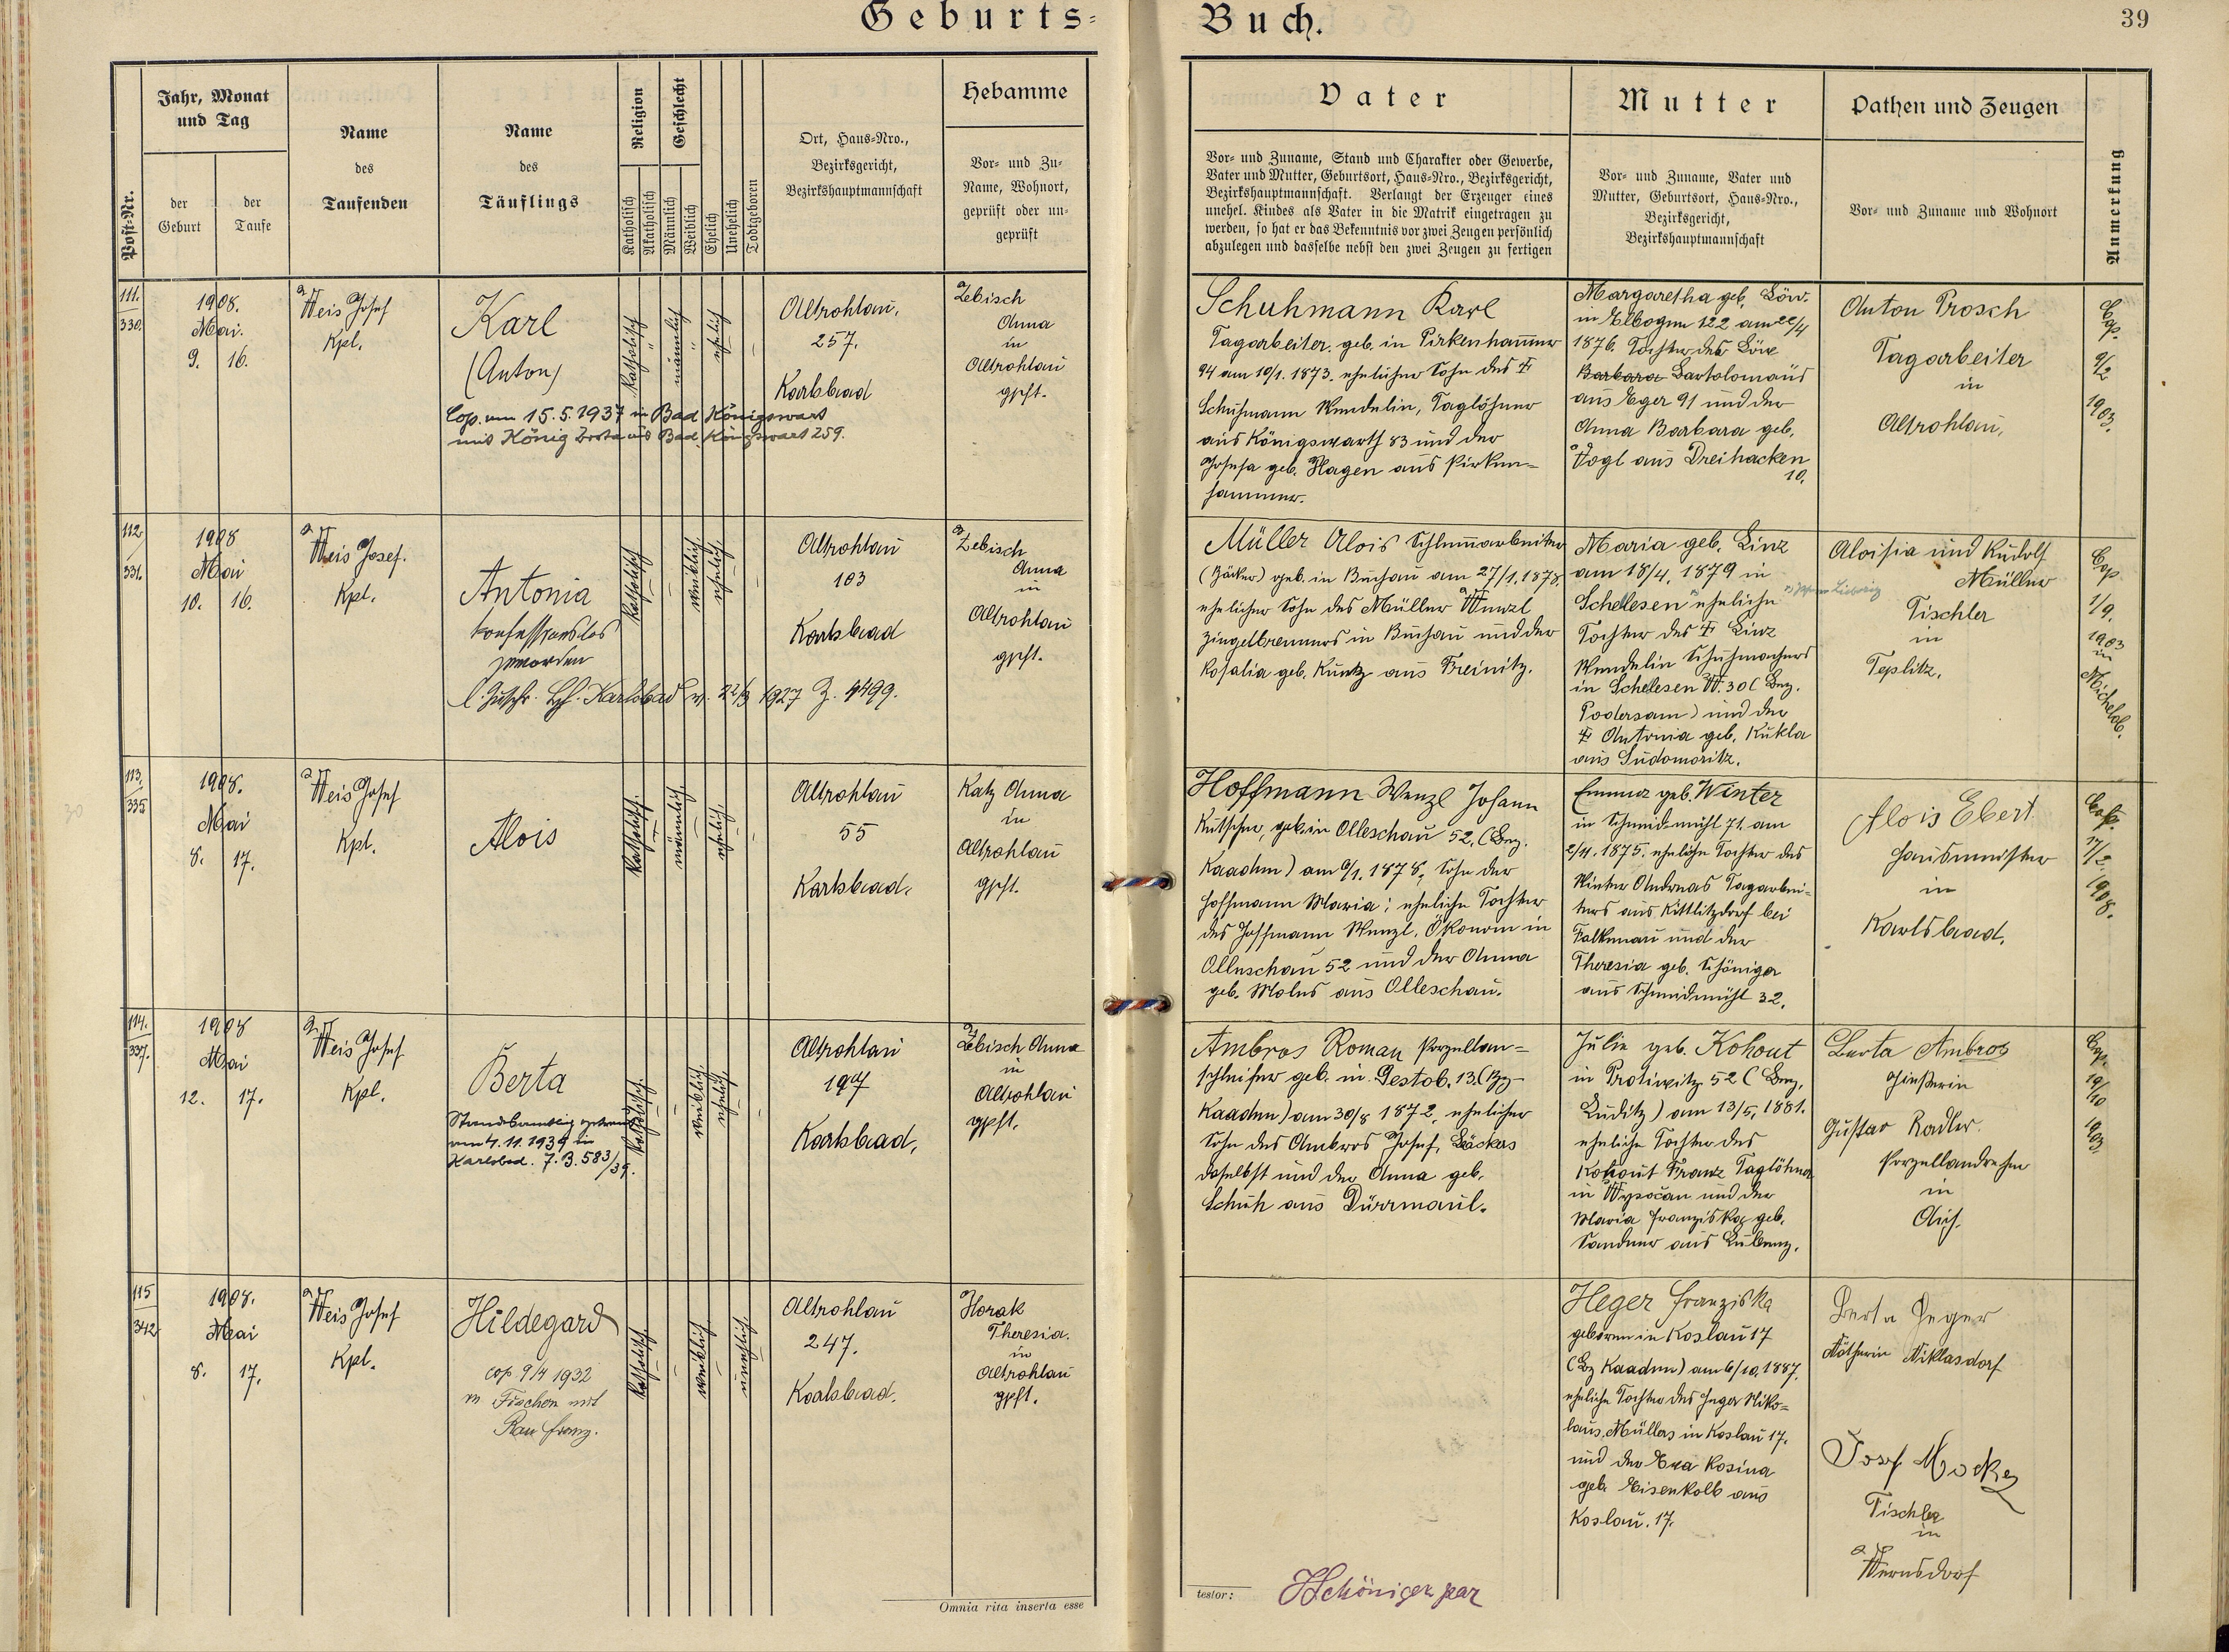 Geburts-
Buch.
39
Post-Nr.
Jahr, Monat
und Tag
der
Geburt
der
Taufe
Name
des
Taufenden
Name
des
Täuflings
Religion
Katholisch
Akatholisch
Geschlecht
Männlich
Weiblich
Ehelich
Unehelich
Todtgeboren
Ort, Haus-Nro.,
Bezirksgericht,
Bezirkshauptmannschaft
Hebamme
Vor- und Zu-
Name, Wohnort,
geprüft oder un-
geprüft
Vater
Vor- und Zuname, Stand und Charakter oder Gewerbe,
Vater und Mutter, Geburtsort, Haus-Nro., Bezirksgericht,
Bezirkshauptmannschaft. Verlangt der Erzeuger eines
unehel. Kindes als Vater in die Matrik eingetragen zu
werden, so hat er das Bekenntnis vor zwei Zeugen persönlich
abzulegen und dasselbe nebst den zwei Zeugen zu fertigen
Mutter
Vor- und Zuname, Vater und
Mutter, Geburtsort, Haus-Nro.,
Bezirksgericht,
Bezirkshauptmannschaft
Pathen und Zeugen
Vor- und Zuname und Wohnort
Anmerkung
111.
330.
1908.
Mai.
9. 16.
Weis Josef
Kpl.
Karl
(Anton)
Cop. am 15.5.1937 in Bad Königswart
mit König Berta aus Bad Königswart 259.
Katholisch
männlich
ehelich
Altrohlau,
257.
Karlsbad
Zebisch
Anna
in
Altrohlau
gpft.
Schuhmann Karl
Tagarbeiter, geb. in Pirkenhammer
94 am 10/1. 1873. ehelicher Sohn des †
Schuhmann Wendelin, Taglöhner
aus Königswarth 83 und der
Josefa geb. Hagen aus Pirken-
hammer.
Margaretha geb. Löw.
in Elbogen 122 am 22/4
1876. Tochter des Löw
Barbara Bartolomäus
aus Eger 91 und der
Anna Barbara geb.
Vogl aus Dreihacken
10.
Anton Prosch
Tagarbeiter
in
Altrohlau,
Cop.
9/2
1903.
112
331.
1908
Mai
10. 16.
Weis Josef.
Kpl.
Antonia
konfessionslos
geworden
l. Zuschr. Bh. Karlsbad v. 22/3 1927 Z. 4499.
Katholisch
weiblich
ehelich
Altrohlau
103
Karlsbad
Zebisch
Anna
in
Altrohlau
gpft.
Müller Alois Schlemmarbeiter
(Bäcker) geb. in Buchau am 27/1. 1878,
ehelicher Sohn des Müller Wenzl
Ziegelbrenners in Buchau und der
Rosalia geb. Kuntz aus Preinitz.
Maria geb. Linz
am 18/4. 1879 in
Schelesen eheliche
Tochter des † Linz
Wendelin Schuhmachers
in Schelesen W. 30 (Bez.
Podersam) und der
† Antonia geb. Kukla
aus Sudomoritz.
Aloisia und Rudolf
Müller
Tischler
in
Teplitz.
Cop
1/9.
1903
in
Michelob.
113.
335
1908.
Mai
8. 17.
Weis Josef
Kpl.
Alois
Katholisch.
männlich
ehelich.
Altrohlau
55
Karlsbad.
Katz Anna
in
Altrohlau
gpft.
Hoffmann Wenzl Johann
Kutscher, geb. in Olleschau 52, (Bez.
Kaaden) am 9/1. 1878, Sohn der
Hoffmann Maria; eheliche Tochter
des Hoffmann Wenzl, Ökonom in
Olleschau 52 und der Anna
geb. Molus aus Olleschau.
Emma geb. Winter
in Schmidmühl 71. am
2/4. 1875. eheliche Tochter des
Winter Andreas Tagarbei-
ters aus Kittlitzdorf bei
Falkenau und der
Theresia geb. Schöniger
aus Schmidmühl 32.
Alois Ebert
Hausmeister
in
Karlsbad.
17/2.
1908.
114.
337.
1908
Mai
12. 17.
Weis Josef
Kpl.
Berta
Standesamtlich getraut
am 4.11.1939 in
Karlsbad. Z.B. 583/39.
Katholisch.
weiblich.
ehelich.
Altrohlau
197
Karlsbad,
Zebisch Anna
in
Altrohlau
gpft.
Ambros Roman Porzellan-
schleifer geb. in Gestob. 13. (Bz-
Kaaden) am 30/8 1872, ehelicher
Sohn des Ambros Josef, Bäckers
daselbst und der Anna geb.
Schuh aus Dürrmaul.
Julie geb. Kohout
in Protiwitz 52 (Bez.
Luditz) am 13/5. 1881.
eheliche Tochter des
Kohout Franz Taglöhner
in Wysočan und der
Maria Franziska geb.
Sandner aus Lubenz.
Berta Ambros
Gießerin
Gustav Radler.
Porzellandreher
in
Aich.
Cop.
19/10
1903.
115
342
1908.
Mai
8. 17.
Weis Josef
Kpl.
Hildegard
cop 9/4 1932
in Fischern mit
Rau Franz.
Katholisch
weiblich
unehelich.
Altrohlau
247.
Karlsbad.
Horak
Theresia.
in
Altrohlau
gpft.
Heger Franziska
geboren in Koslau 17
(Bz Kaaden) am 6/10. 1887.
eheliche Tochter des Heger Niko-
laus, Müllers in Koslau 17.
und der Eva Rosina
geb. Eisenkolb aus
Koslau. 17.
Berta Heger
Nätherin Niklasdorf
Josef Mocker
Tischler
in
Wernsdorf
Omnia rita inserta esse
testor: